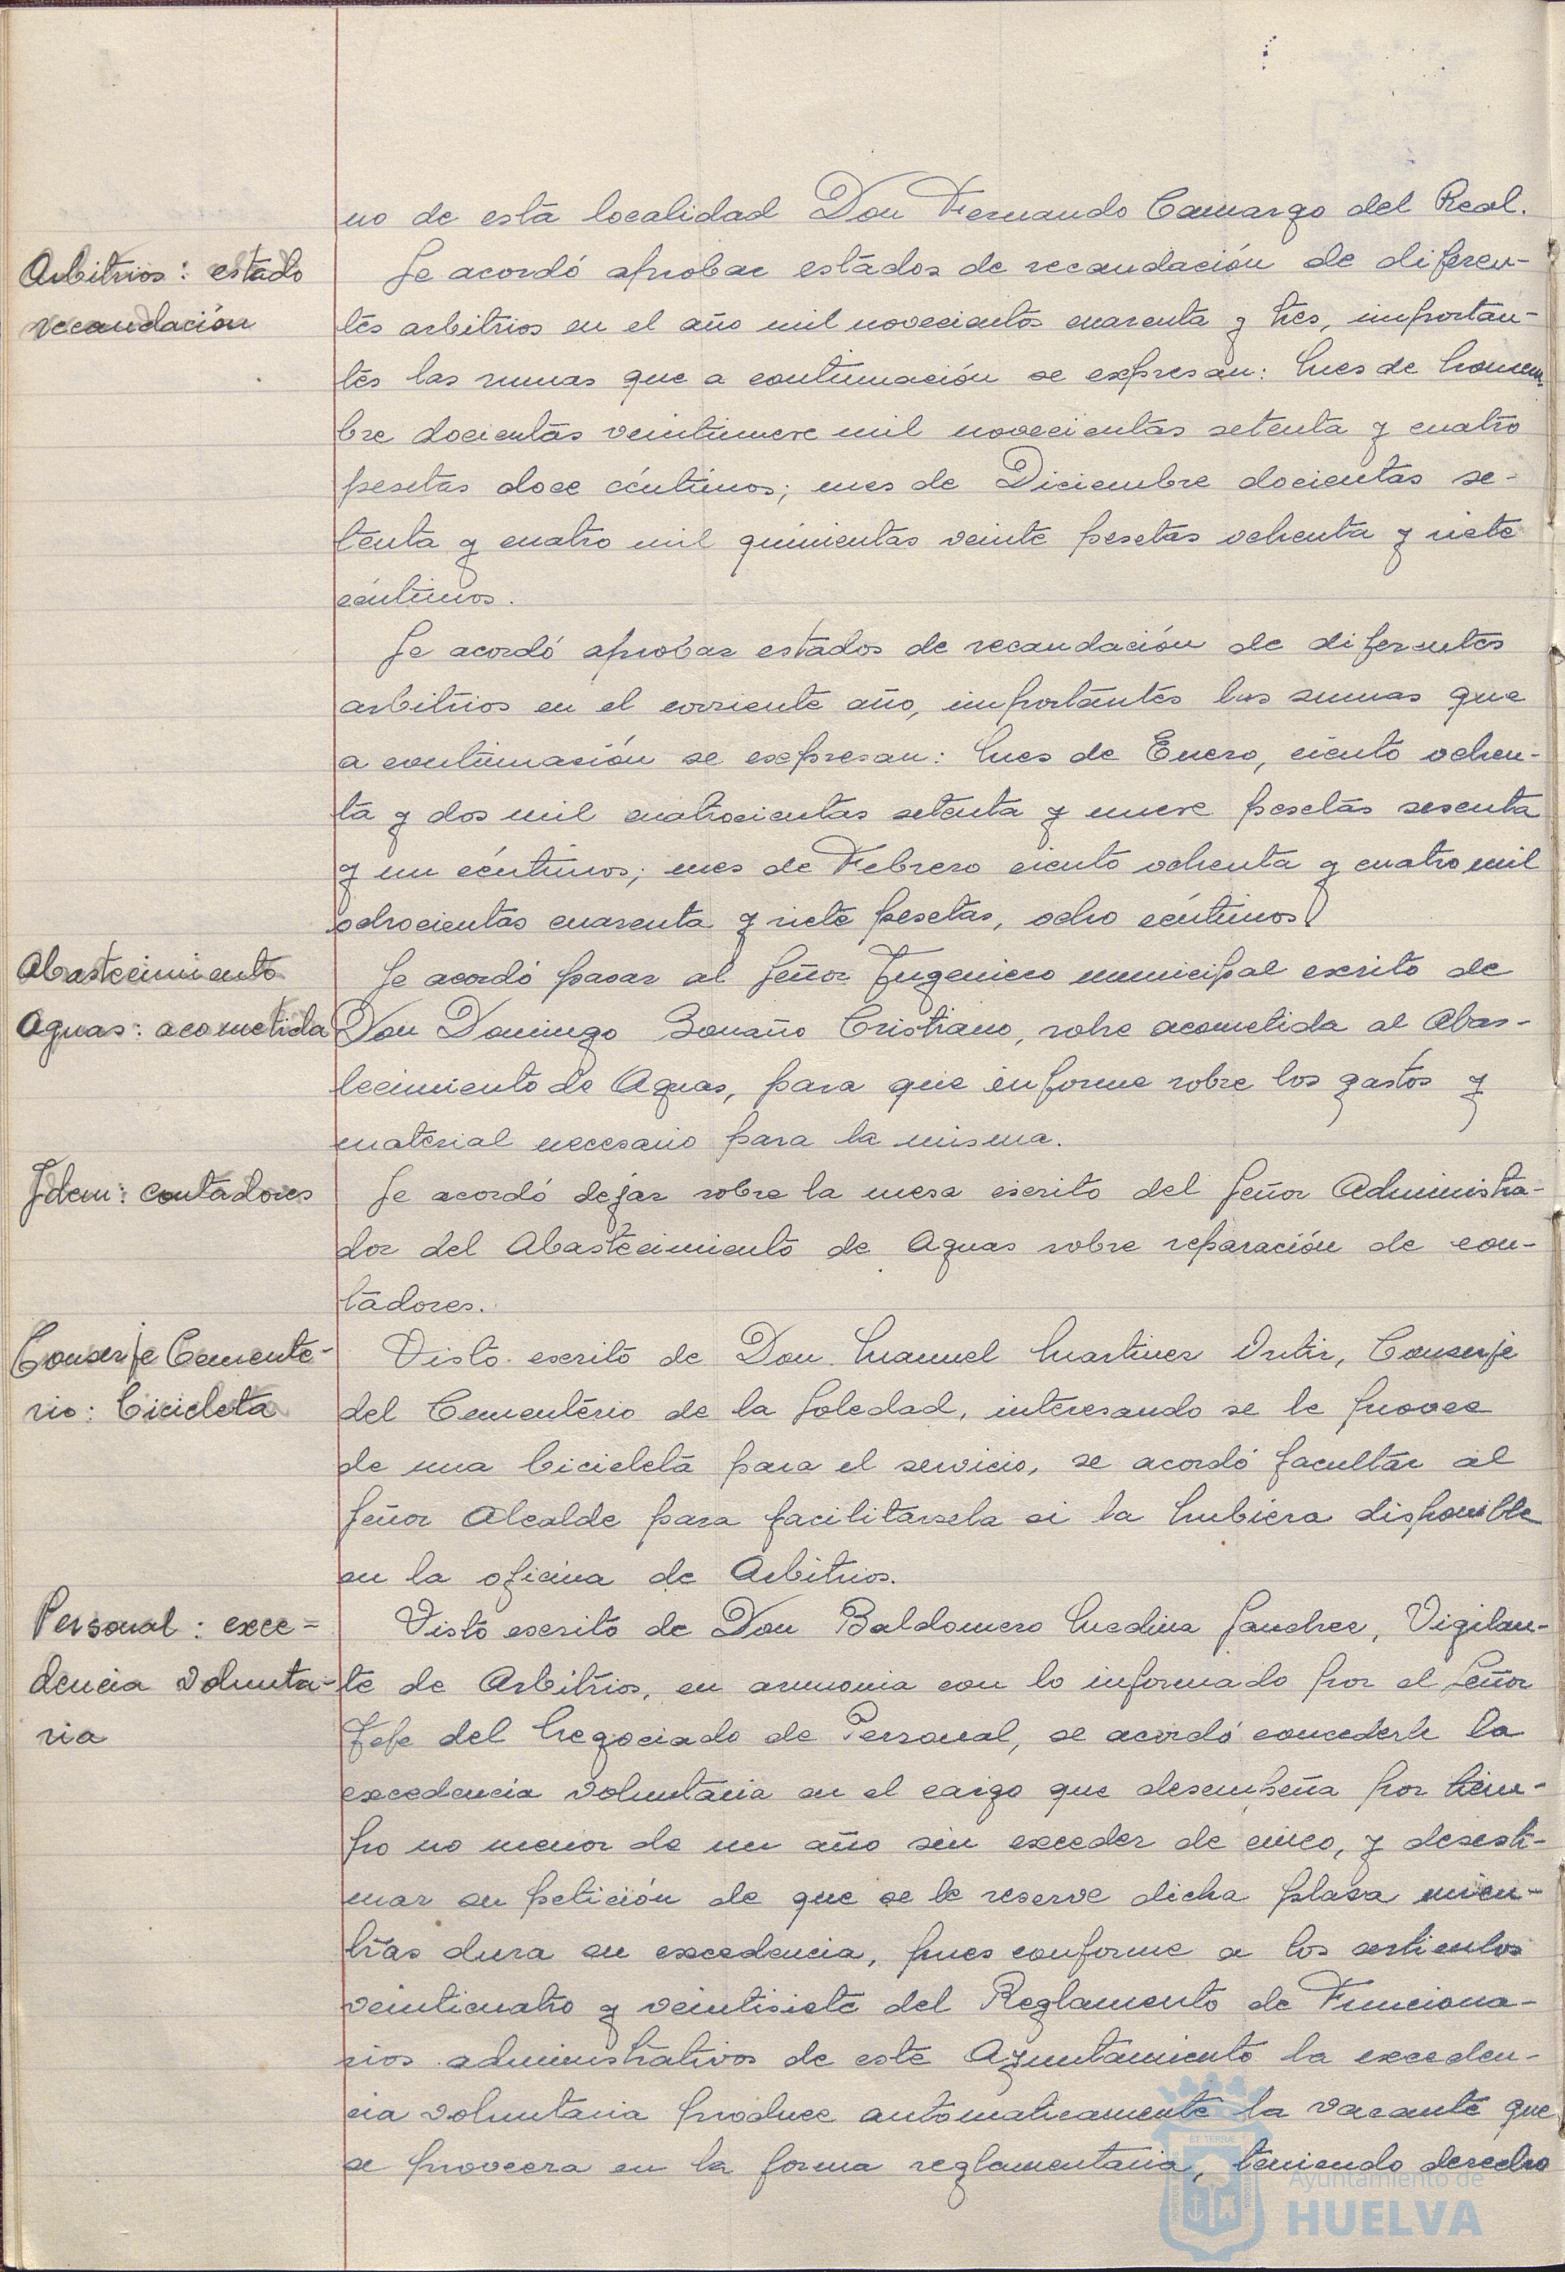 no de esta localidad Don Fernando Camargo del Real.
Arbitrios: estado
recaudación
Se acordó aprobar estados de recaudación de diferen-
tes arbitrios en el año mil novecientos cuarenta y tres, importan-
tes las sumas que a continuación se expresan: Mes de Noviem-
bre docientas veintinueve mil novecientas setenta y cuatro
pesetas doce céntimos; mes de Diciembre docientas se-
tenta y cuatro mil quinientas veinte pesetas ochenta y siete
céntimos.
Se acordó aprobar estados de recaudación de diferentes
arbitrios en el corriente año, importantes las sumas que
a continuación se expresan: Mes de Enero, ciento ochen-
ta y dos mil cuatrocientas setenta y nueve pesetas sesenta
y un céntimos; mes de Febrero ciento ochenta y cuatro mil
ochocientas cuarenta y siete pesetas, ocho céntimos
Abastecimiento
Aguas: acometida
Se acordó pasar al Señor Ingeniero municipal escrito de
Don Domingo Cristiano, sobre acometida al Abas-
tecimiento de Aguas, para que informe sobre los gastos y
material necesario para la misma.
Idem: contadores
Se acordó dejar sobre la mesa escrito del Señor Administra-
dor del Abastecimiento de Aguas sobre reparación de con-
tadores.
Conserje Cemente-
rio: bicicleta
Visto escrito de Don Manuel Martinez Ortiz, Conserje
del Cementerio de la Soledad, interesando se le provee
de una bicicleta para el servicio, se acordó facultar al
Señor Alcalde para facilitarsela si la hubiera disponible
en la oficina de Arbitrios.
Personal: exce-
dencia volunta-
ria
Visto escrito de Don Baldomero Medina Sanchez, Vigilan-
te de Arbitrios, en armonia con lo informado por el Señor
Jefe del Negociado de Personal, se acordó concederle la
excedencia voluntaria en el cargo que desempeña por tiem-
po no menor de un año sin exceder de cinco, y desesti-
mar su petición de que se le reserve dicha plaza mien-
tras dura su excedencia, pues conforme a los articulos
veinticuatro y veintisiete del Reglamento de Funciona-
rios administrativos de este Ayuntamiento la exceden-
cia voluntaria produce automaticamente la vacante que
se proveera en la forma reglamentaria, teniendo derecho
Ayuntamiento de
HUELVA